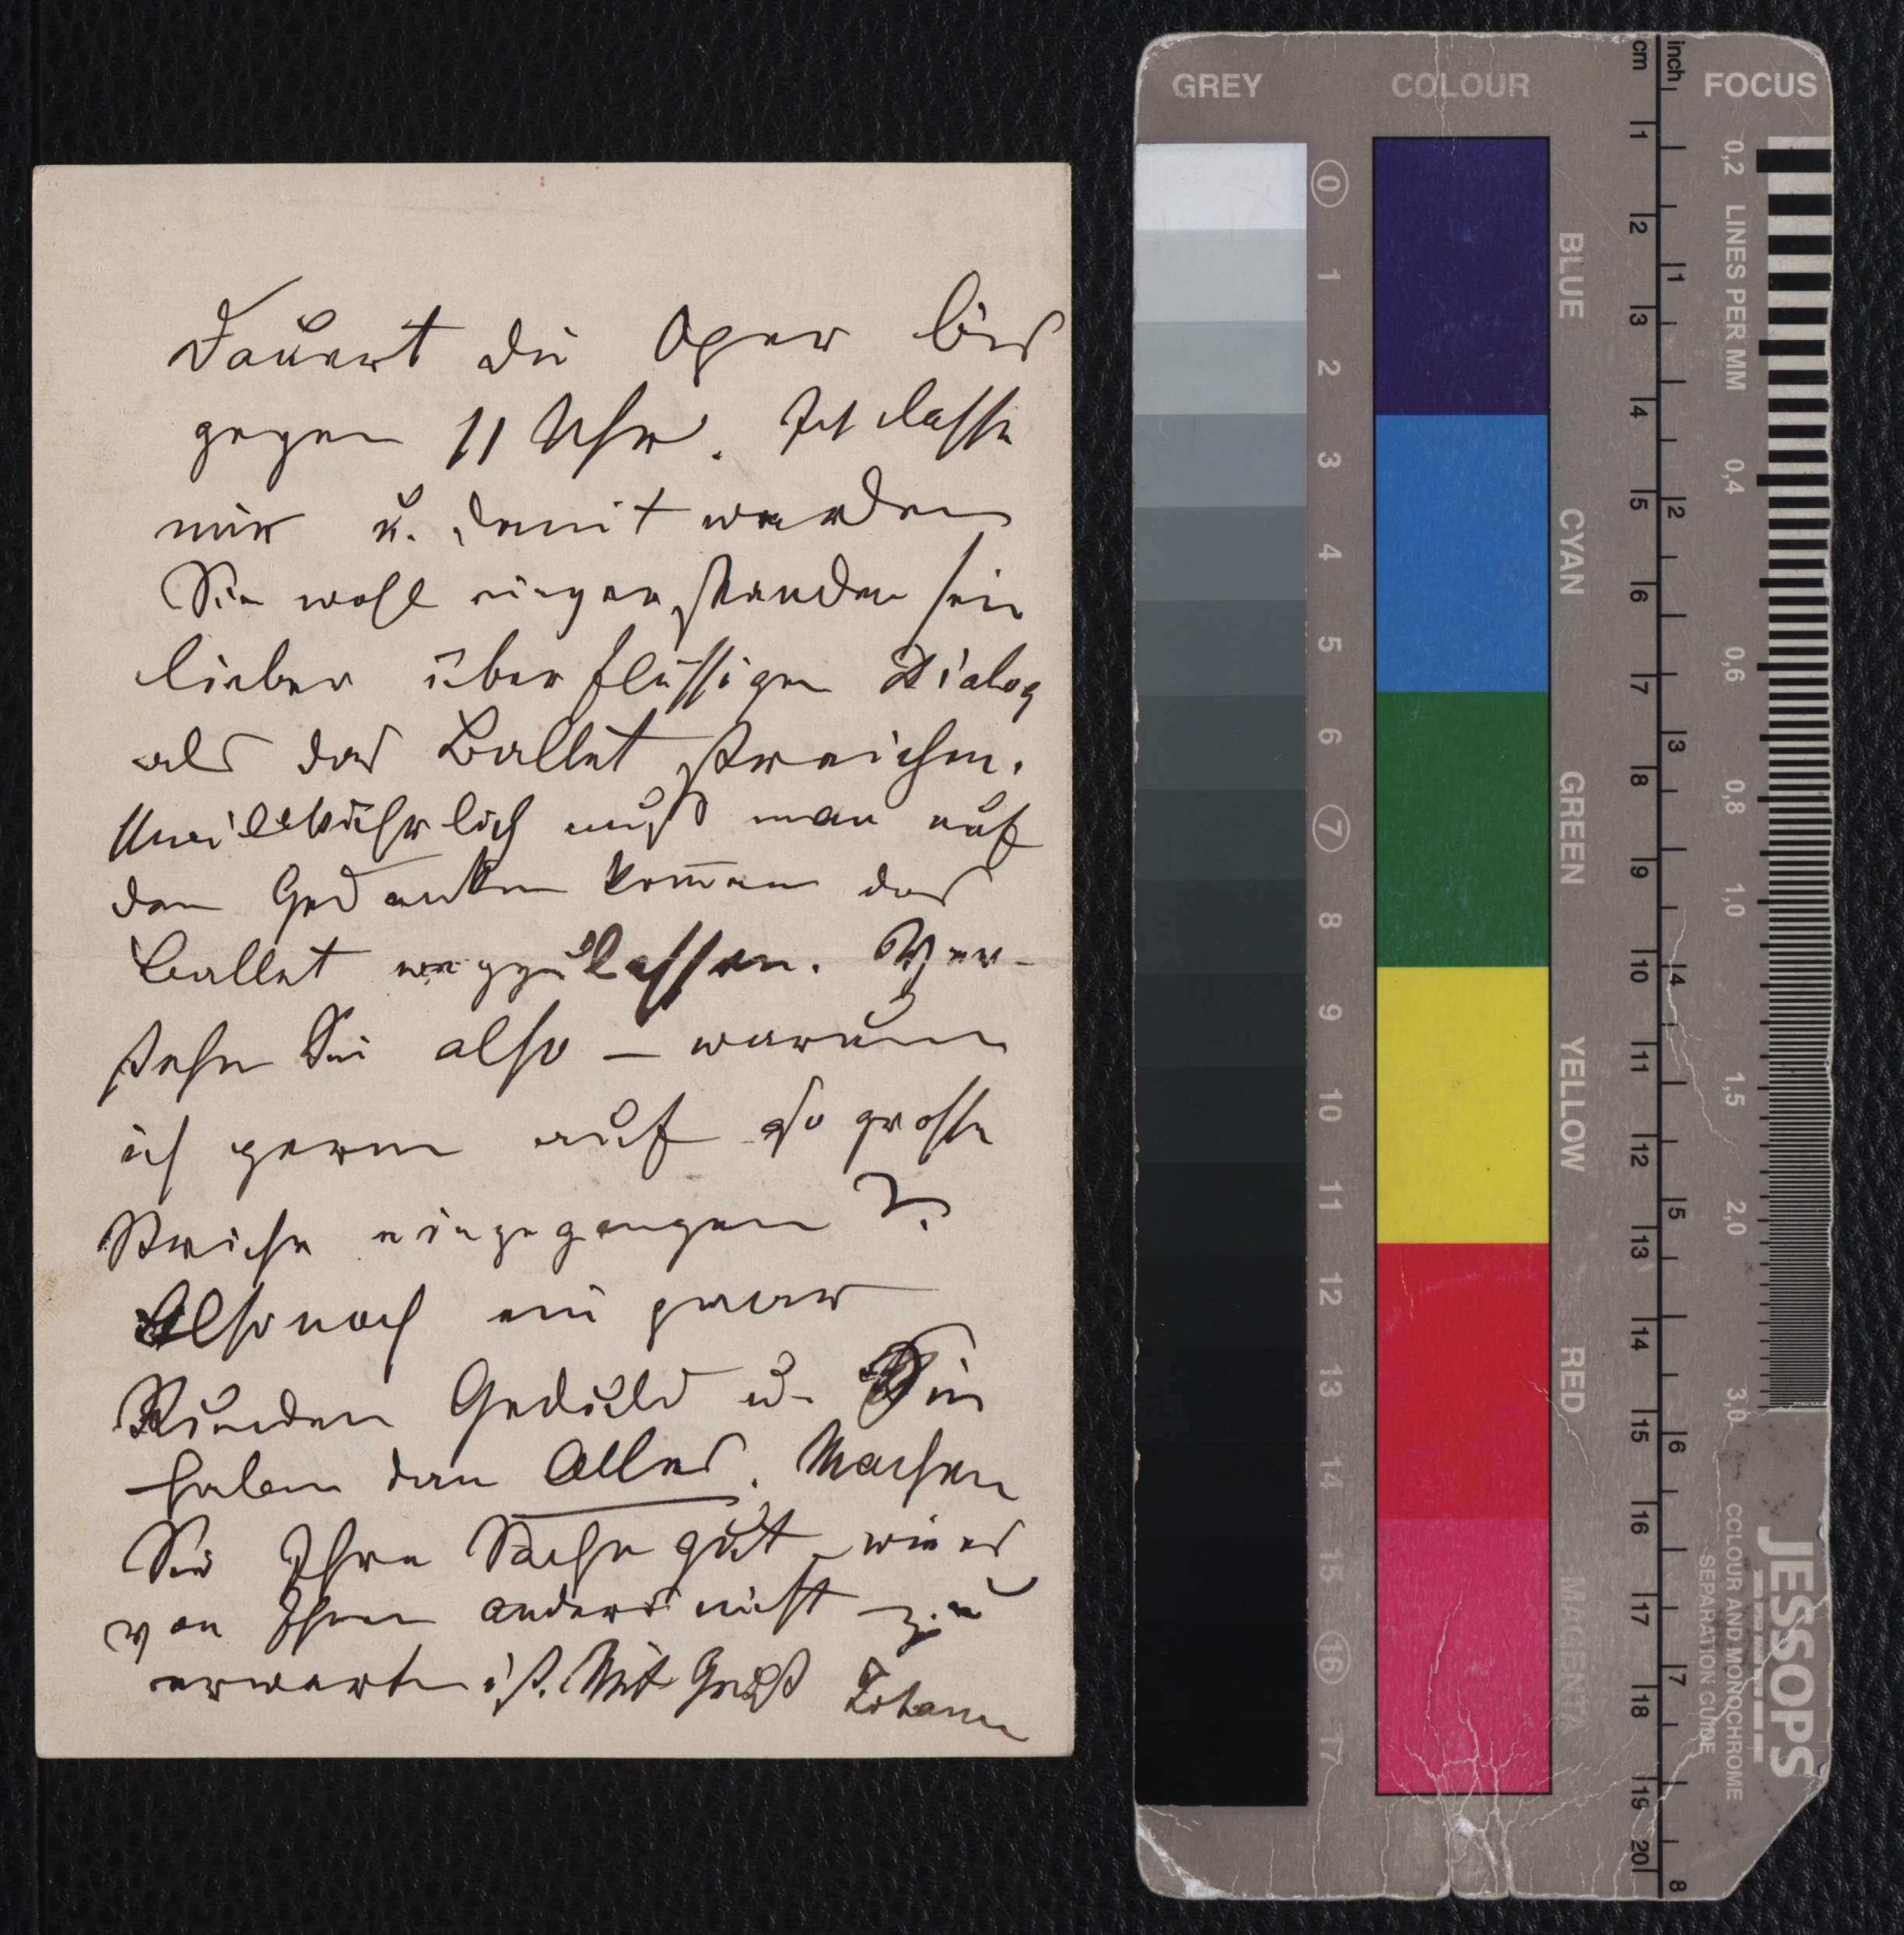 Dauert die Oper bis
gegen 11 Uhr. Ich lasse
mir u. damit werden
Sie wohl einverstanden sein
lieber überflüssigen Dialog
als das Ballet streichen.
Unwillkührlich muß man auf
den Gedanken kom̄en das
Ballet wegzulassen. Ver-
stehn Sie also – warum
ich gerne auf so grosse
Striche eingegangen?
Also noch ein paar
Stunden Geduld u. Sie
haben dan Alles. Machen
Sie Ihre Sache gut, wie es
von Ihnen anders nicht zu
erwarten ist. Mit Gruß Johann
GREY
COLOUR
FOCUS
cm
inch
0 1 2 3 4 5 6 7 8 9 10 11 12 13 14 15 16 17
BLUE
CYAN
GREEN
YELLOW
RED
MAGENTA
1 2 3 4 5 6 7 8 9 10 11 12 13 14 15 16 17 18 19 20
1 2 3 4 5 6 7 8
0,2 LINES PER MM 0,4 0,6 0,8 1,0 1,5 2,0 3,0
JESSOPS
COLOUR AND MONOCHROME
SEPARATION GUIDE